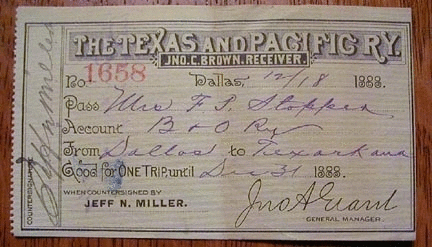 THE TEXAS AND PACIFIC RY.
JNO. C. BROWN, RECEIVER.
No. 1658 Dallas, 12/18 1888.
Pass Mrs F. P.
Account B & O Ry
From Dallas to Texarkana
Good for ONE TRIP until Dec 31 1888.
WHEN COUNTERSIGNED BY
JEFF N. MILLER.
GENERAL MANAGER.
COUNTERSIGNATURE
Jeff N Miller